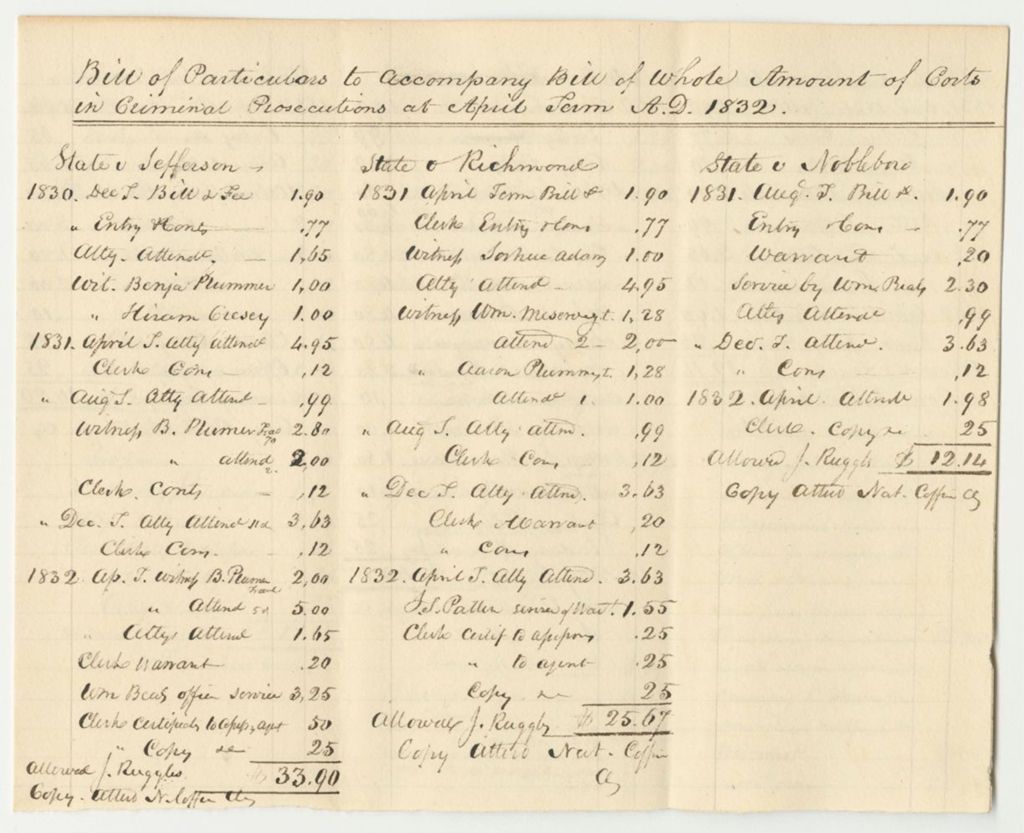 Bill of Particulars to accompany Bill of Whole Amount of Costs
in Criminal Prosecutions at April Term A.D. 1832.
State v Jefferson
1830. Dec T. Bill & Fee 1.90
" Entry & Cont 77
Atty. Attende. 1,65
Wit. Benja Plummer 1,00
" Hiram Cresey 1.00
1831. April T. Atty attende 4.95
Clerk Con ,12
" Aug T. Atty Attend ,99
Witness B. Plumer 2.80
" attend 2. 2,00
Clerk. Conts ,12
" Dec. T. Atty Attend 11d 3,63
Clerk Con. ,12
1832 Ap. T. witness B. Plumer 2,00
" Attend 5d 5.00
" Attys attend 1.65
Clerk Warrant .20
Wm Beals officer service 3,25
Clerk certificate to 50
" Copy &c 25
Allowed J. Ruggles $33.90
Copy. Attest N. Coffin Clk
State v Richmond
1831 April Term Bill & 1.90
Clerk Entry & Con .77
Witness Joshua Adams 1.00
Atty attend 4.95
Witness Wm. Meservey t. 1,28
attend 2 2,00
" Aaron Plummer t. 1,28
Attende 1. 1.00
" Aug T. Atty. atten. ,99
Clerk Con ,12
" Dec T. Atty. Atten. 3.63
Clerk Warrant ,20
" Con ,12
1832. April T. Atty Attend. 3.63
J.S. Patten service of Wart. 1.55
Clerk certif to .25
" to agent .25
Copy &c 25
Allowed J. Ruggles $25.67
Copy Attest Nat. Coffin
Clk
State v Nobleboro
1831. Aug. T. Bill &. 1.90
Entry & Con .77
Warrant ,20
Service by Wm Beals 2.30
Attys Attende ,99
" Dec. T. Attend. 3.63
" Con ,12
1832. April. Attende 1.98
Clerk. Copy &c 25
Allowed J. Ruggles $12.14
Copy Attest Nat. Coffin Clk